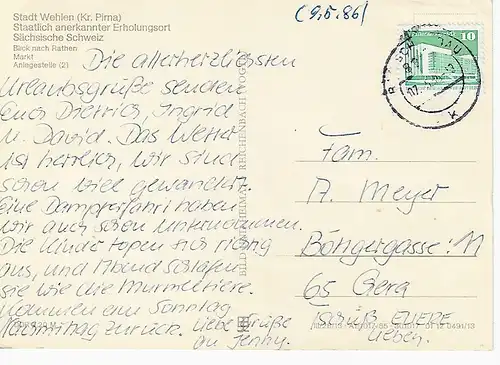 Stadt Wehlen (Kr. Pirna)
Staatlich anerkannter Erholungsort
Sächsische Schweiz
Blick nach Rathen
Markt
Anlegestelle (2)
(9,5,86)
10
Die allerherzlichsten
Urlaubsgrüße senden
Euch Dietrich, Ingrid
u. David. Das Wetter
ist herrlich, wir sind
schon viel gewandert.
Eine Dampferfahrt haben
wir auch schon unternommen.
Die Kinder toben sich richtig
aus, und Abend schlafen
sie wie die Murmeltiere.
Kommen am Sonntag
Nachmittag zurück. Liebe Grüße
an Jenny.
BILD UND HEIMAT REICHENBACH (VOGTL)
Fam.
A. Meyer
Böttgergasse 11
65 Gera
EUERE
Lieben.